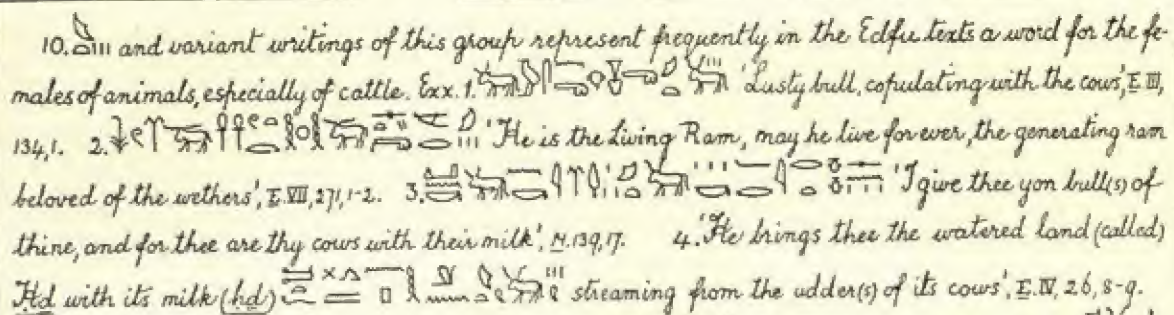 10. and variant writings of this group represent frequently in the Edfu texts a word for the fe-
males of animals, especially of cattle. Exx. 1. 'Lusty bull, copulating with the cows', E. III,
134,1. 2. 'He is the Living Ram, may he live for ever, the generating ram
beloved of the wethers', E. VII, 271, 1-2. 3. 'I give thee yon bull(s) of
thine, and for thee are thy cows with their milk', M. 139, 17. 4. 'He brings thee the watered land (called)
Ḥd with its milk (ḥd) streaming from the udder(s) of its cows', E. IV, 26, 8-9.